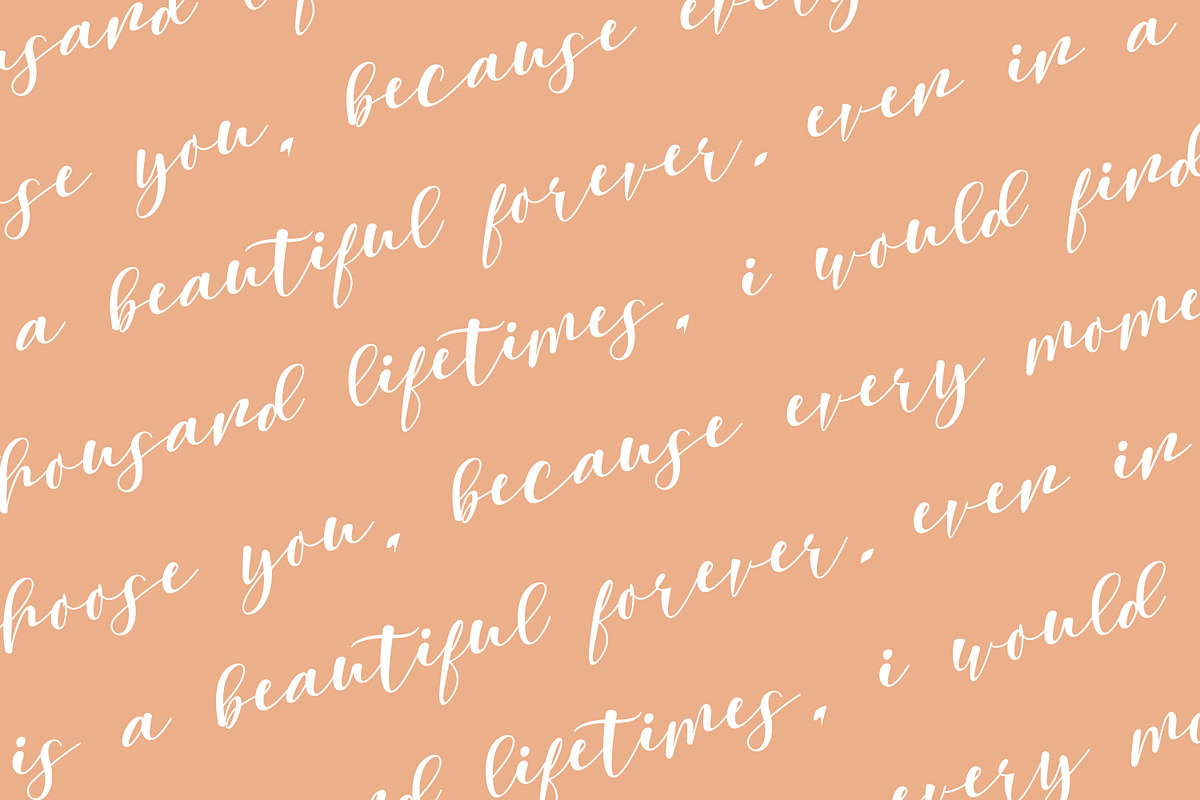 usand lif
se you, because every
a beautiful forever. even in a
housand lifetimes, i would find
hoose you, because every mome
is a beautiful forever. even in
nd lifetimes, i would
every mo